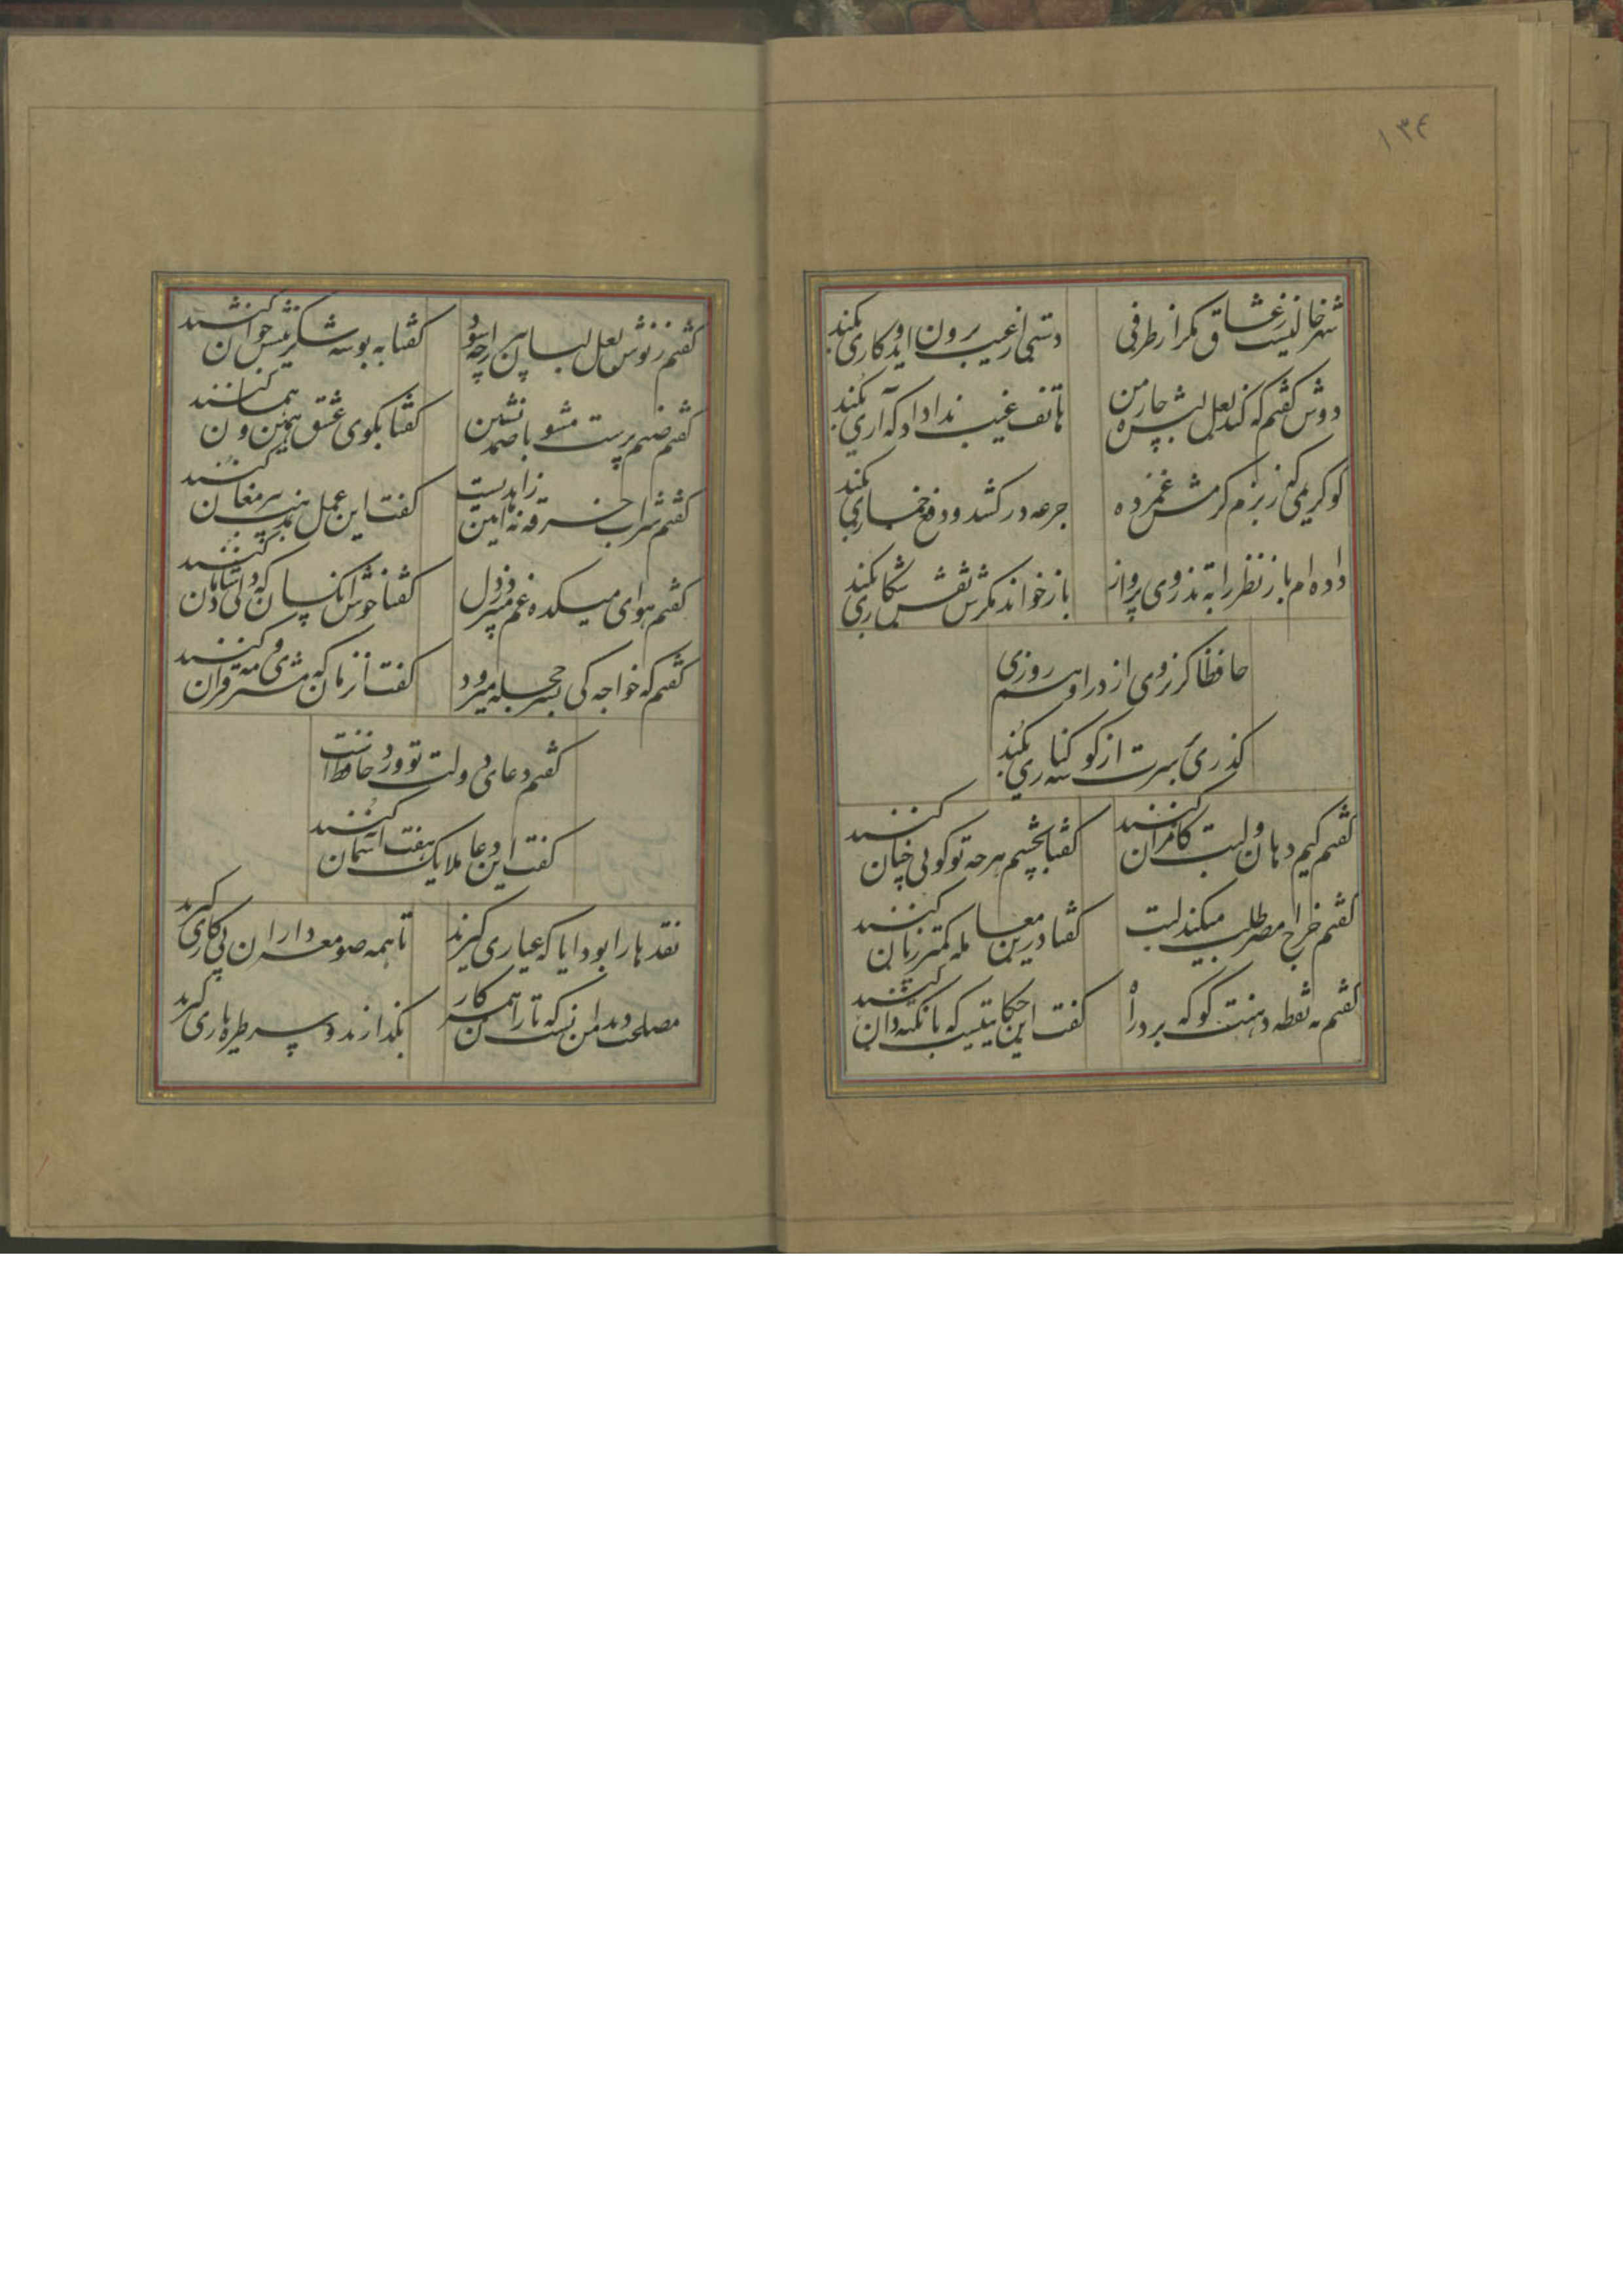 ۱۳۴
شهر خالیست ز عشاق مکر از طرفی
دستی از غیب برون اید و کاری بکند
دوش کفتم که کند لعل لبش چاره من
هاتف غیب ندا داد که آری بکند
کو کریمی که ز بزم کرمش غمزده
جرعه در کشد و دفع خماری بکند
داده ام باز نظر را به تذروی پرواز
باز خواند مکرش نقش شکاری بکند
حافظا کر نروی از در او هم روزی
کذری بر سرت از کوشه کناری بکند
کفتم کیم دهان و لبت کامران کنند
کفتا بچشم هرچه تو کویی چنان کنند
کفتم خراج مصر طلب میکند لبت
کفتا درین معامله کمتر زیان کنند
کفتم به نقطه دهنت کو که برد راه
کفت این حکایتیست که با نکته دان کنند
کفتم ز نوش لعل لبان پیر را چه سود
کفتا به بوسه شکرینش جوان کنند
کفتم صنم پرست مشو با صمد نشین
کفتا بکوی عشق همین و همان کنند
کفتم شراب خرقه نه آیین زاهدیست
کفت این عمل بمذهب پیر مغان کنند
کفتم هوای میکده غم میبرد ز دل
کفتا خوش انکسان که دلی شادمان کنند
کفتم که خواجه کی بسر حجله میرود
کفت ان زمان که مشتری و مه قران کنند
کفتم دعای دولت تو ورد حافظ است
کفت این دعا ملایک هفت آسمان کنند
نقدها را بود ایا که عیاری کیرند
تا همه صومعه داران پی کاری کیرند
مصلحت دید من انست که تاران همه کار
بکذارند و سر طره یاری کیرند